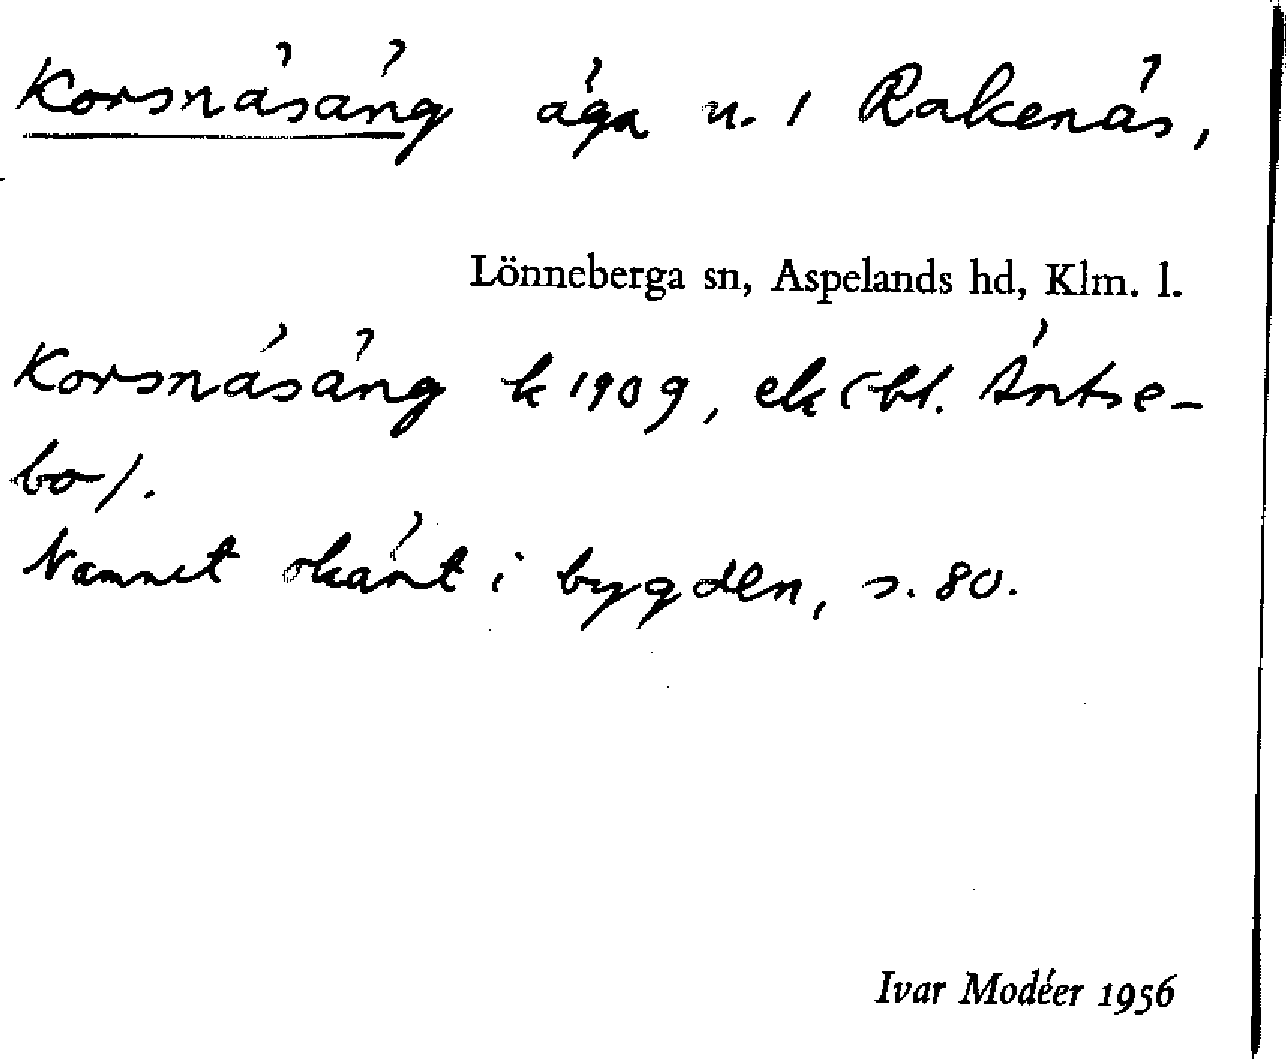 Korsnäsäng äga u. 1 Rakenäs,
Lönneberga sn, Aspelands hd, Klm. l.
Korsnäsäng k 1909, ek (bl. Äntse-
bo).
Namnet okänt i bygden, s. 80.
Ivar Modéer 1956